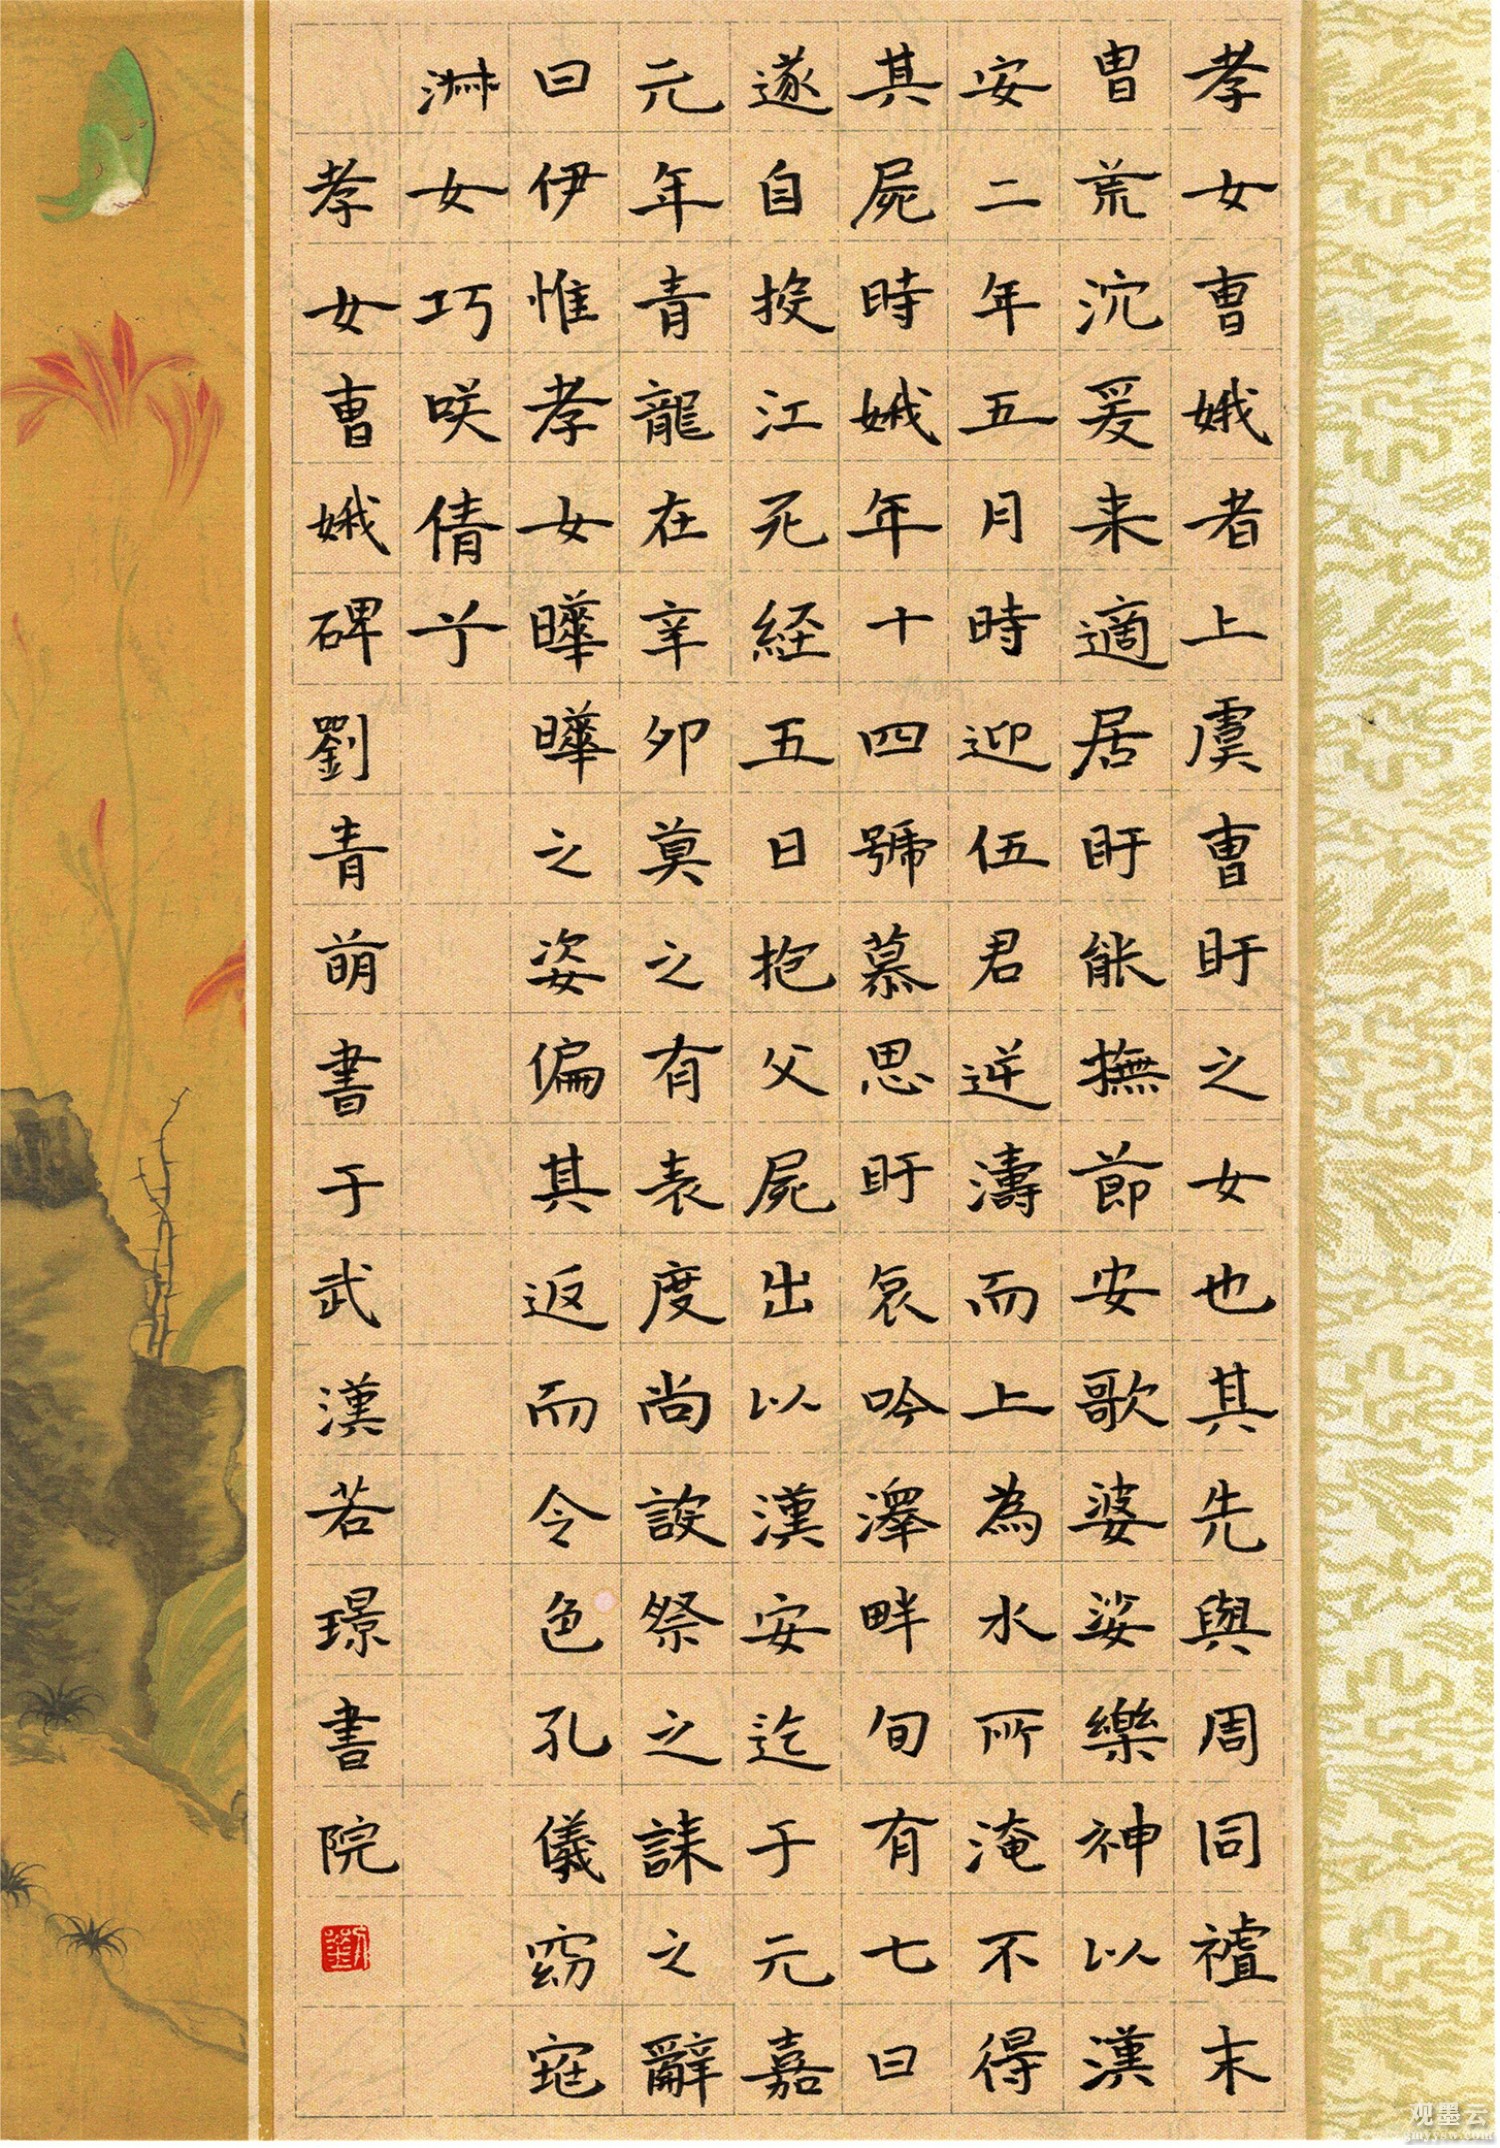 孝女曹娥者上虞曹盱之女也其先與周同祖末
胄荒沉爰来適居盱能撫節安歌婆娑樂神以漢
安二年五月時迎伍君逆濤而上為水所淹不得
其屍時娥年十四號慕思盱哀吟澤畔旬有七日
遂自投江死経五日抱父屍出以漢安迄于元嘉
元年青龍在辛卯莫之有表度尚設祭之誄之辭
曰伊惟孝女曄曄之姿偏其返而令色孔儀窈窕
淋女巧咲倩兮
孝女曹娥碑劉青萌書于武漢若璟書院
观墨云
gmyysw.com